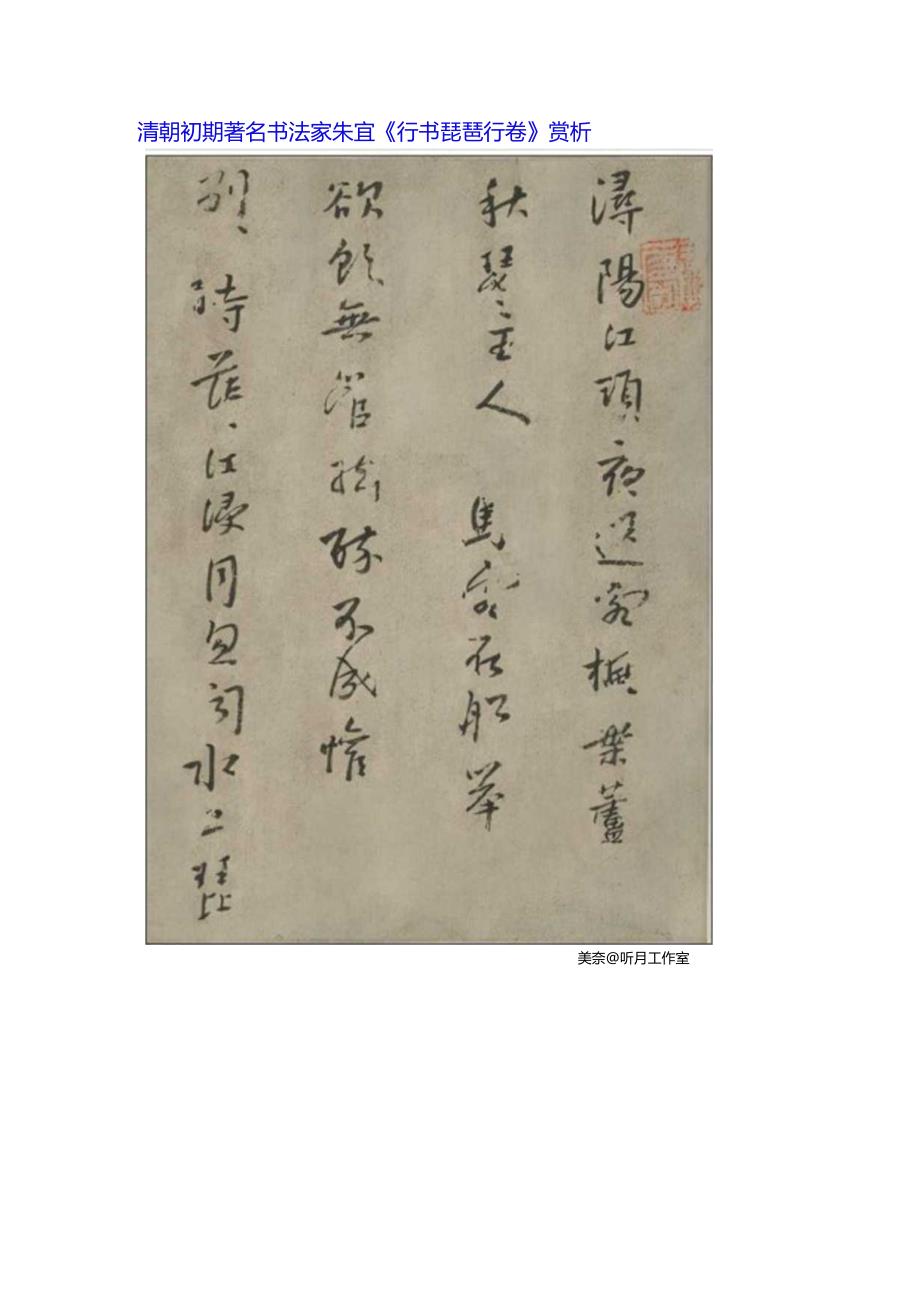 清朝初期著名书法家朱宜《行书琵琶行卷》赏析
潯陽江頭夜送客楓葉蘆
秋瑟〻主人馬客在船舉
欲飲無管絃醉不成慘
別〻時茫〻江浸月忽聞水上琵
美奈@听月工作室